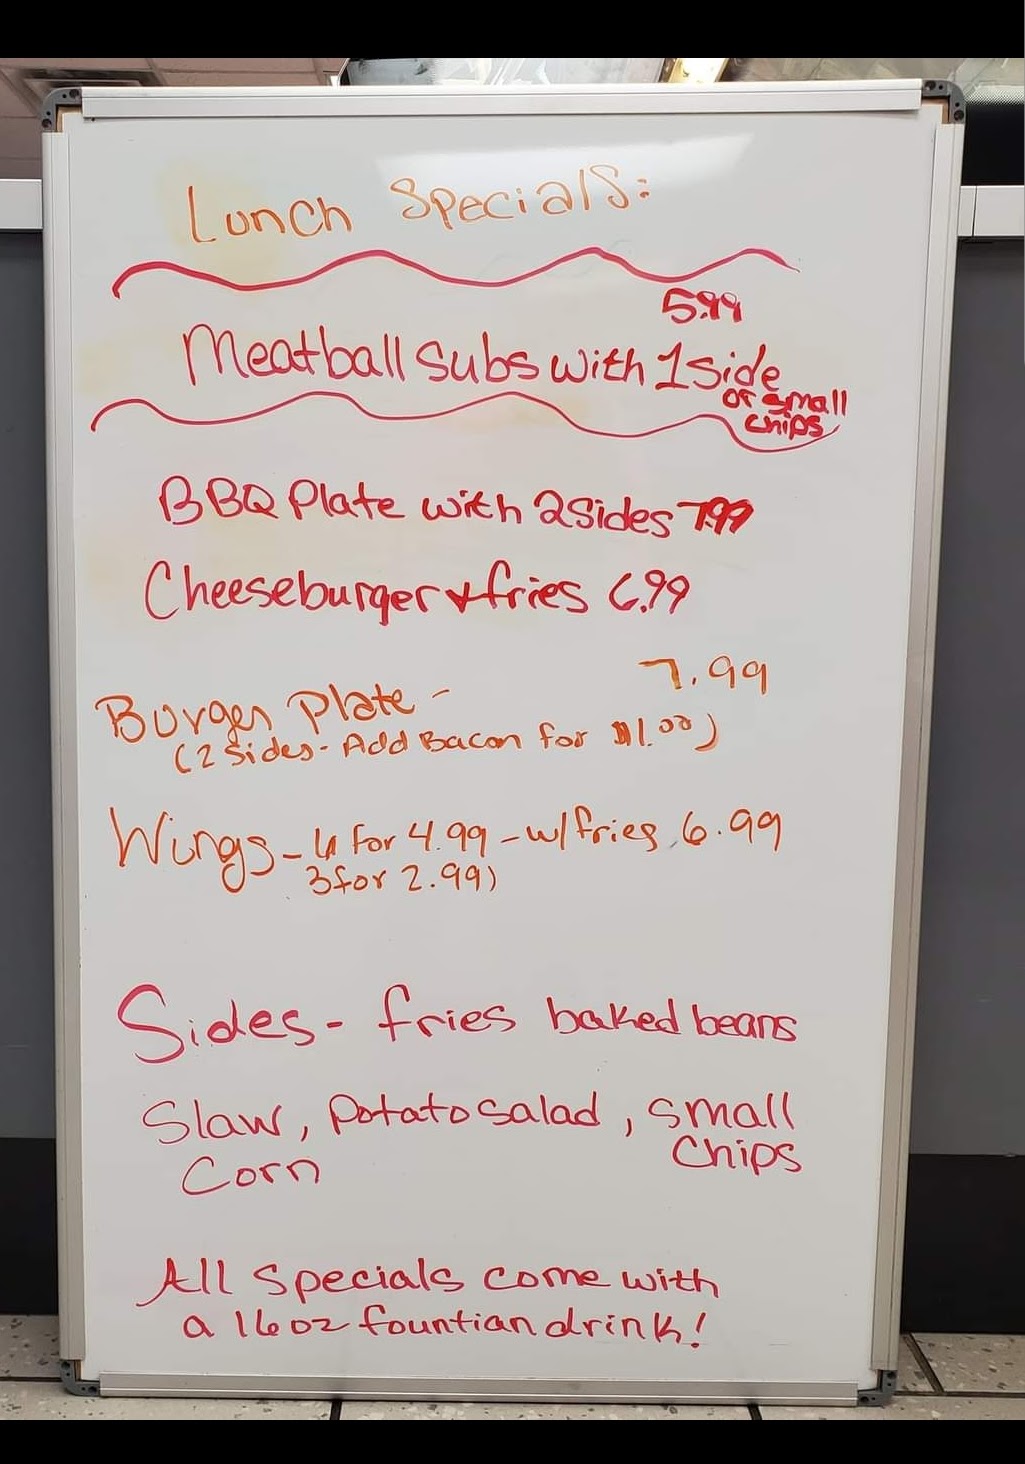 Lunch Specials:
5.99
Meatball subs with 1 side
or small
chips
BBQ Plate with 2 sides 7.99
Cheeseburger & fries 6.99
Burger Plate - 7.99
(2 sides - Add Bacon for $1.00)
Wings - 6 for 4.99 - w/ fries 6.99
3 for 2.99)
Sides - fries baked beans
Slaw, Potato Salad, small
Corn Chips
All specials come with
a 16 oz fountian drink!